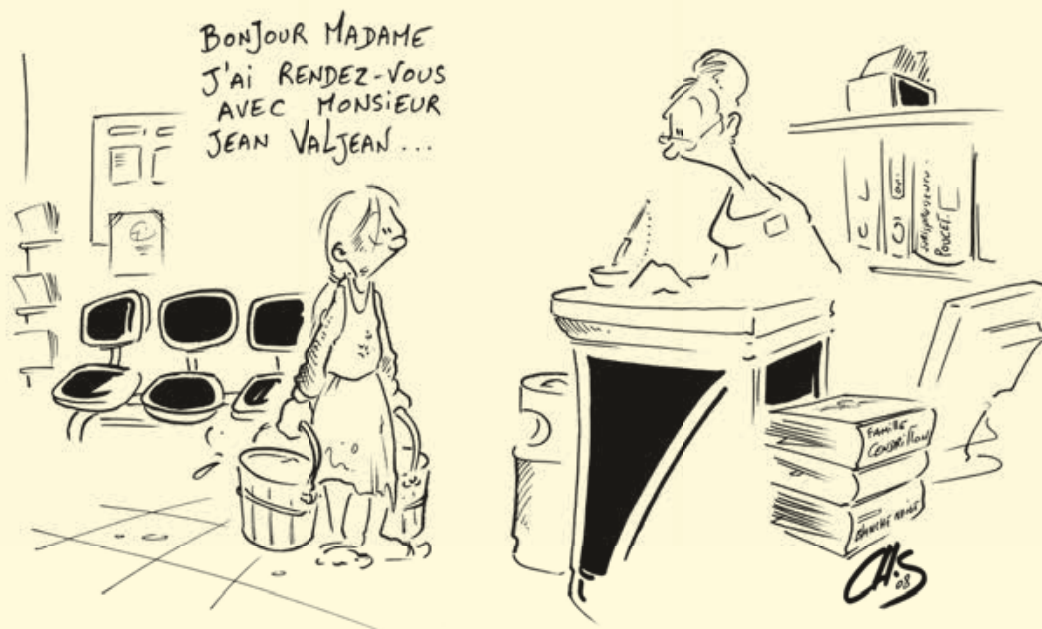 BONJOUR MADAME
J'AI RENDEZ-VOUS
AVEC MONSIEUR
JEAN VALJEAN...
POUCET
FAMILLE
CENDRILLON
BLANCHE NEIGE
CH.S
08